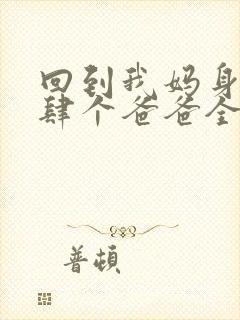 回到我妈身
肆个爸爸全
普顿